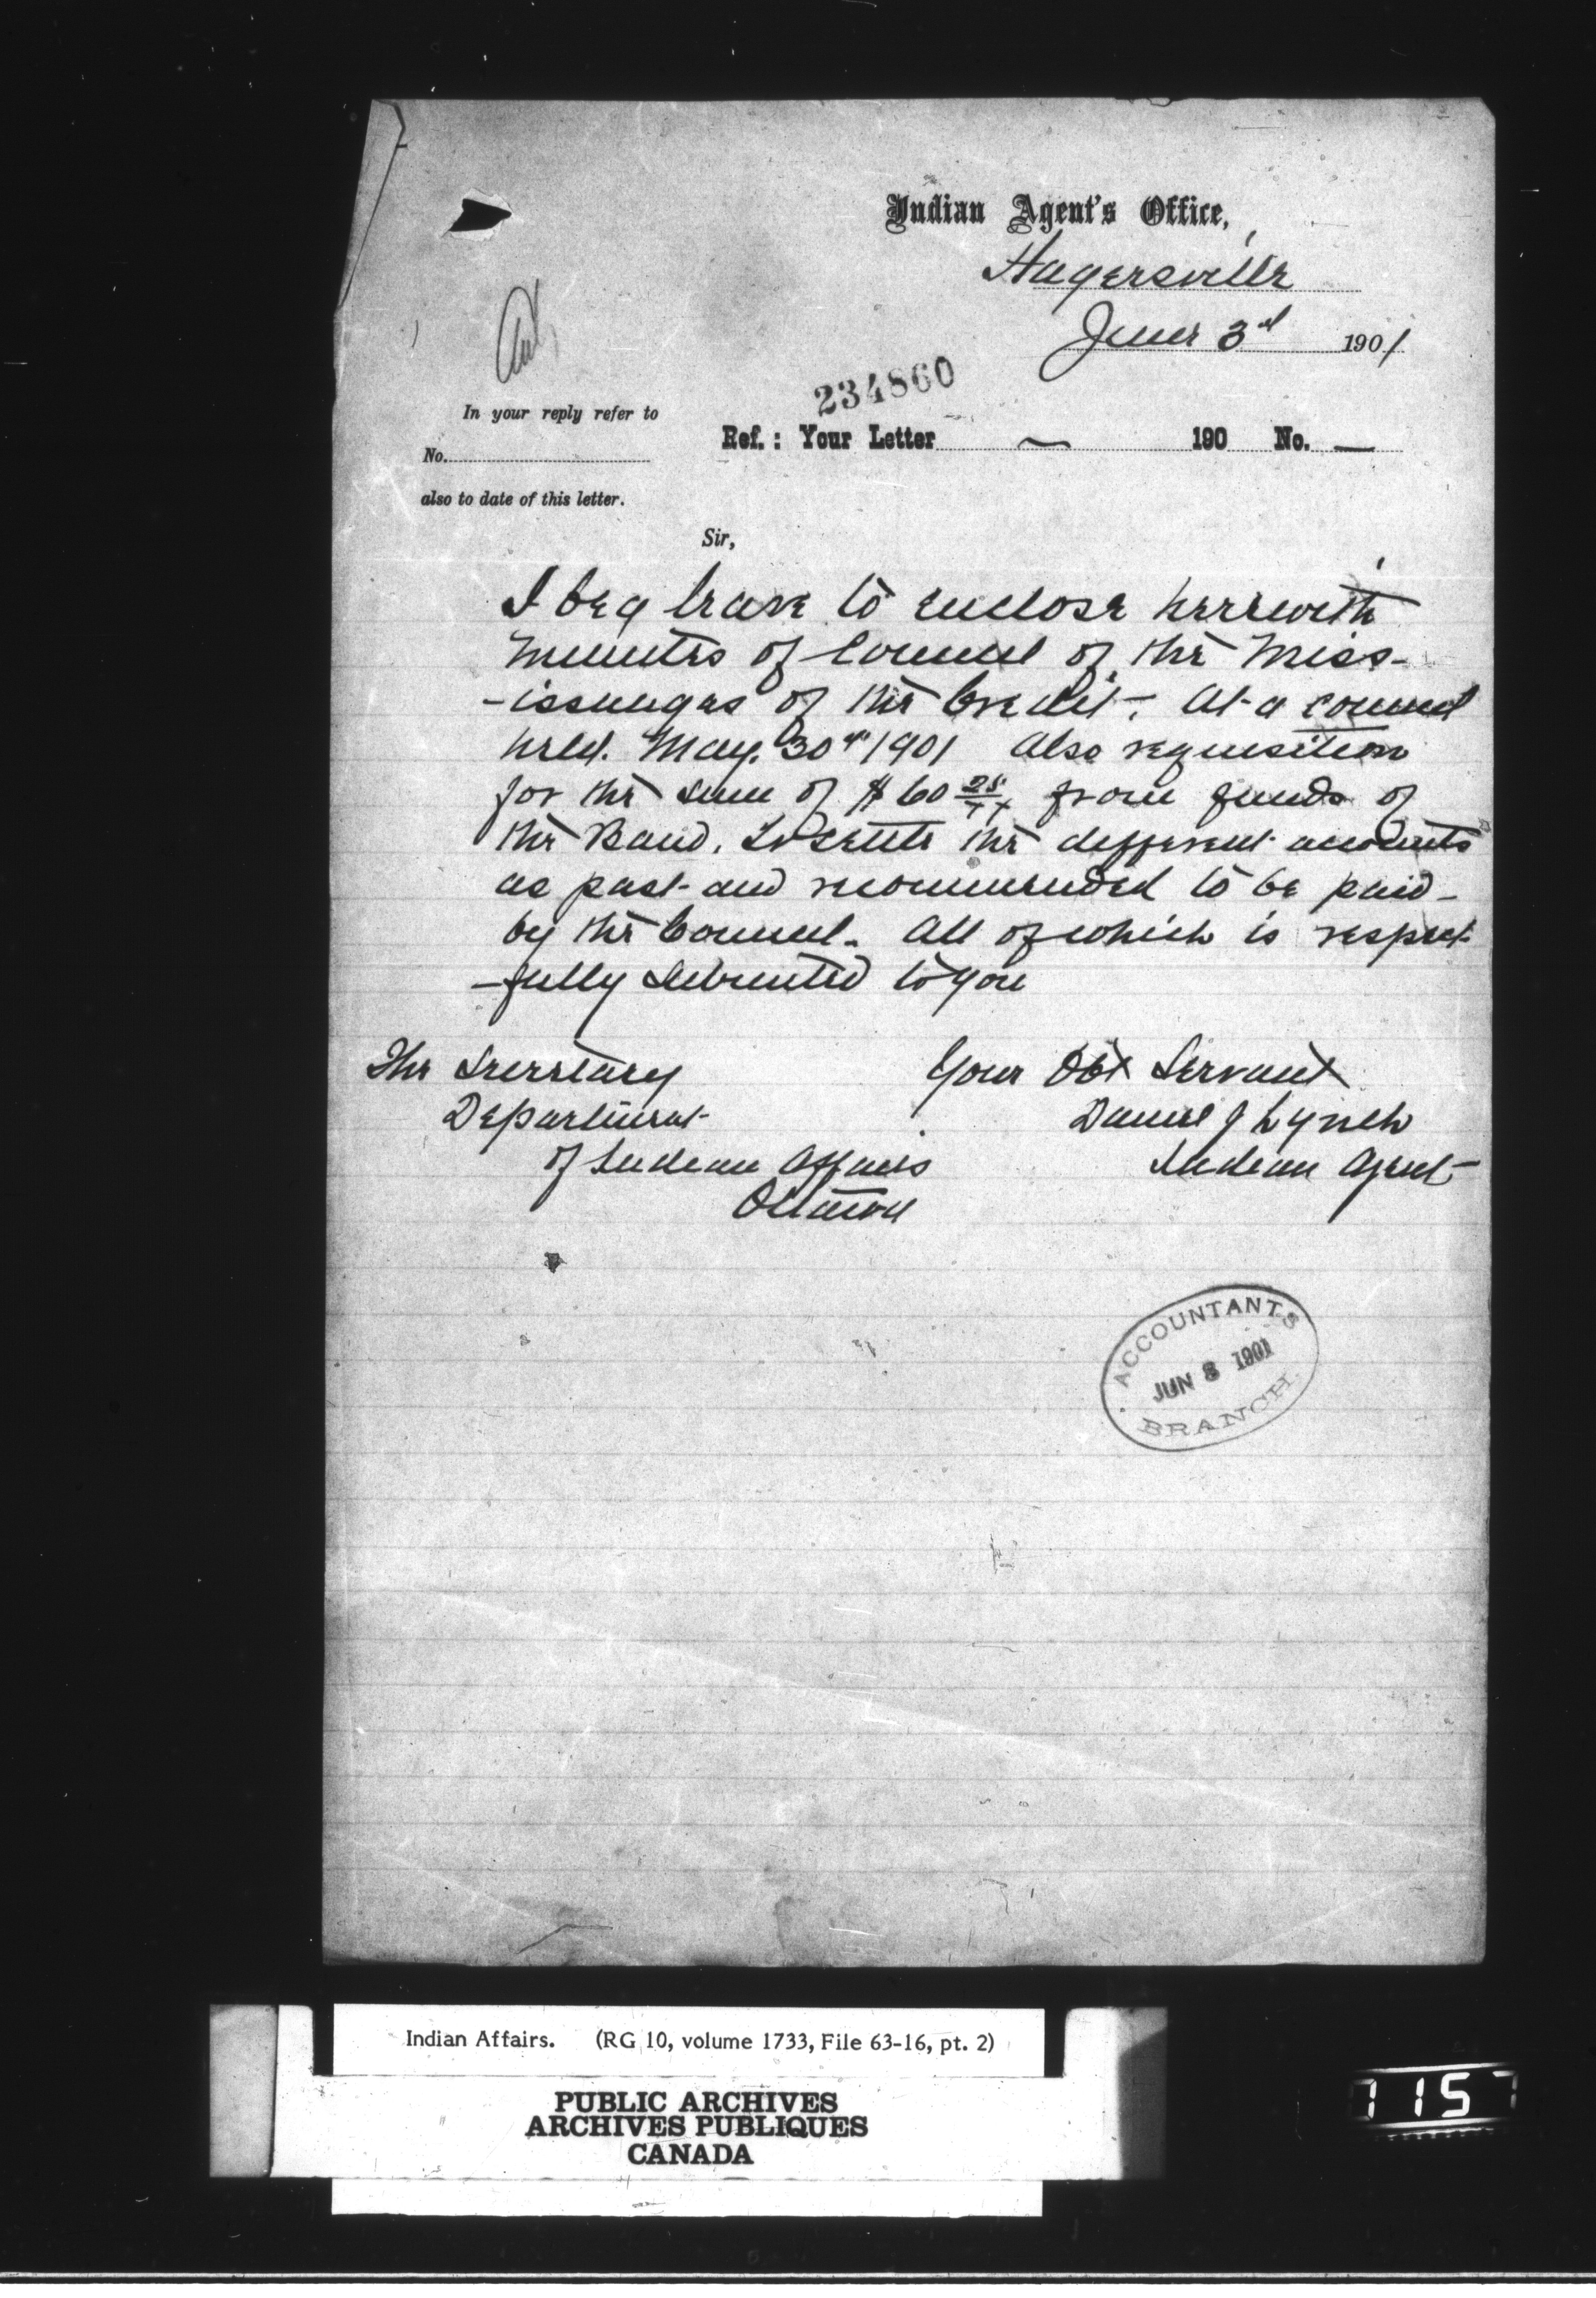 Indian Agent's Office,
Hagersville
June 3rd 1901
234860
In your reply refer to
No.
Ref.: Your Letter — 190 No. —
also to date of this letter.
Sir,
I beg leave to enclose herewith
minutes of Council of the Miss-
-issaugas of the Credit, At a council
held. May. 30th 1901 Also requisition
for the sum of $60 25/xx from funds of
the Band. To settle the different accounts
as past and recommended to be paid-
by the Council. All of which is respect-
-fully submitted to you
The Secretary
Department
of Indian Affairs
Ottawa
Your Obt Servant
Daniel J Lynch
Indian Agent
ACCOUNTANTS
JUN 8 1901
BRANCH
Indian Affairs. (RG 10, volume 1733, File 63-16, pt. 2)
PUBLIC ARCHIVES
ARCHIVES PUBLIQUES
CANADA